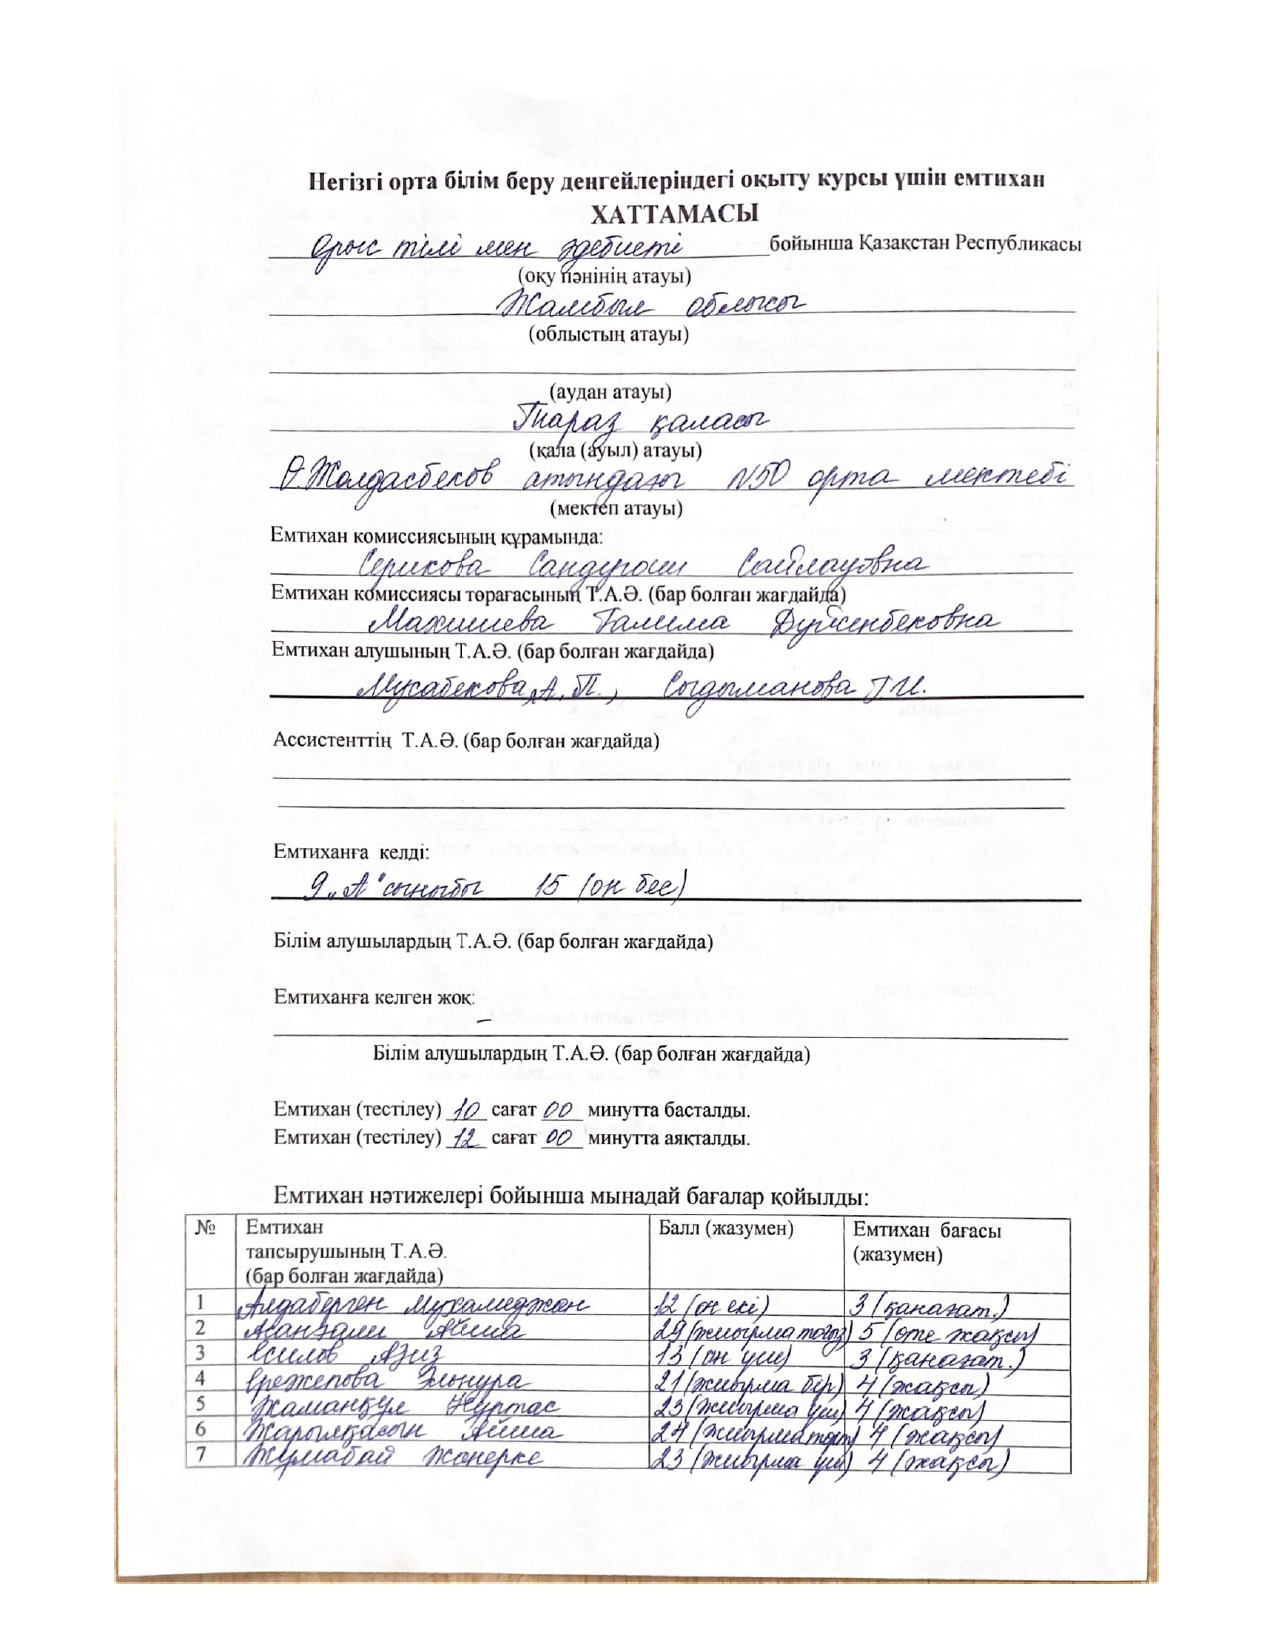 Негізгі орта білім беру деңгейлеріндегі оқыту курсы үшін емтихан
ХАТТАМАСЫ
Орыс тілі мен әдебиеті бойынша Қазақстан Республикасы
(оқу пәнінің атауы)
Жамбыл облысы
(облыстың атауы)
(аудан атауы)
Тараз қаласы
(қала (ауыл) атауы)
Ө.Жолдасбеков атындағы N50 орта мектебі
(мектеп атауы)
Емтихан комиссиясының құрамында:
Серикова Сандугаш Сайлауовна
Емтихан комиссиясы төрағасының Т.А.Ә. (бар болған жағдайда)
Махишева Галима Дүйсенбековна
Емтихан алушының Т.А.Ә. (бар болған жағдайда)
Мусабекова А.П., Сыдыманова Г.И.
Ассистенттің Т.А.Ә. (бар болған жағдайда)
Емтиханға келді:
9 „А" сыныбы 15 (он бес)
Білім алушылардың Т.А.Ә. (бар болған жағдайда)
Емтиханға келген жоқ:
–
Білім алушылардың Т.А.Ә. (бар болған жағдайда)
Емтихан (тестілеу) 10 сағат 00 минутта басталды.
Емтихан (тестілеу) 12 сағат 00 минутта аяқталды.
Емтихан нәтижелері бойынша мынадай бағалар қойылды:
№ Емтихан тапсырушының Т.А.Ә. (бар болған жағдайда) Балл (жазумен) Емтихан бағасы (жазумен)
1 Алдаберген Мухамеджан 12 (он екі) 3 (қанағат.)
2 Асанәли Айша 29 (жиырма тоғыз) 5 (өте жақсы)
3 Есилов Азиз 13 (он үш) 3 (қанағат.)
4 Ережепова Эльнура 21 (жиырма бір) 4 (жақсы)
5 Жаманқұл Нұртас 23 (жиырма үш) 4 (жақсы)
6 Жарылқасын Айша 24 (жиырма төрт) 4 (жақсы)
7 Жұмабай Жанерке 23 (жиырма үш) 4 (жақсы)